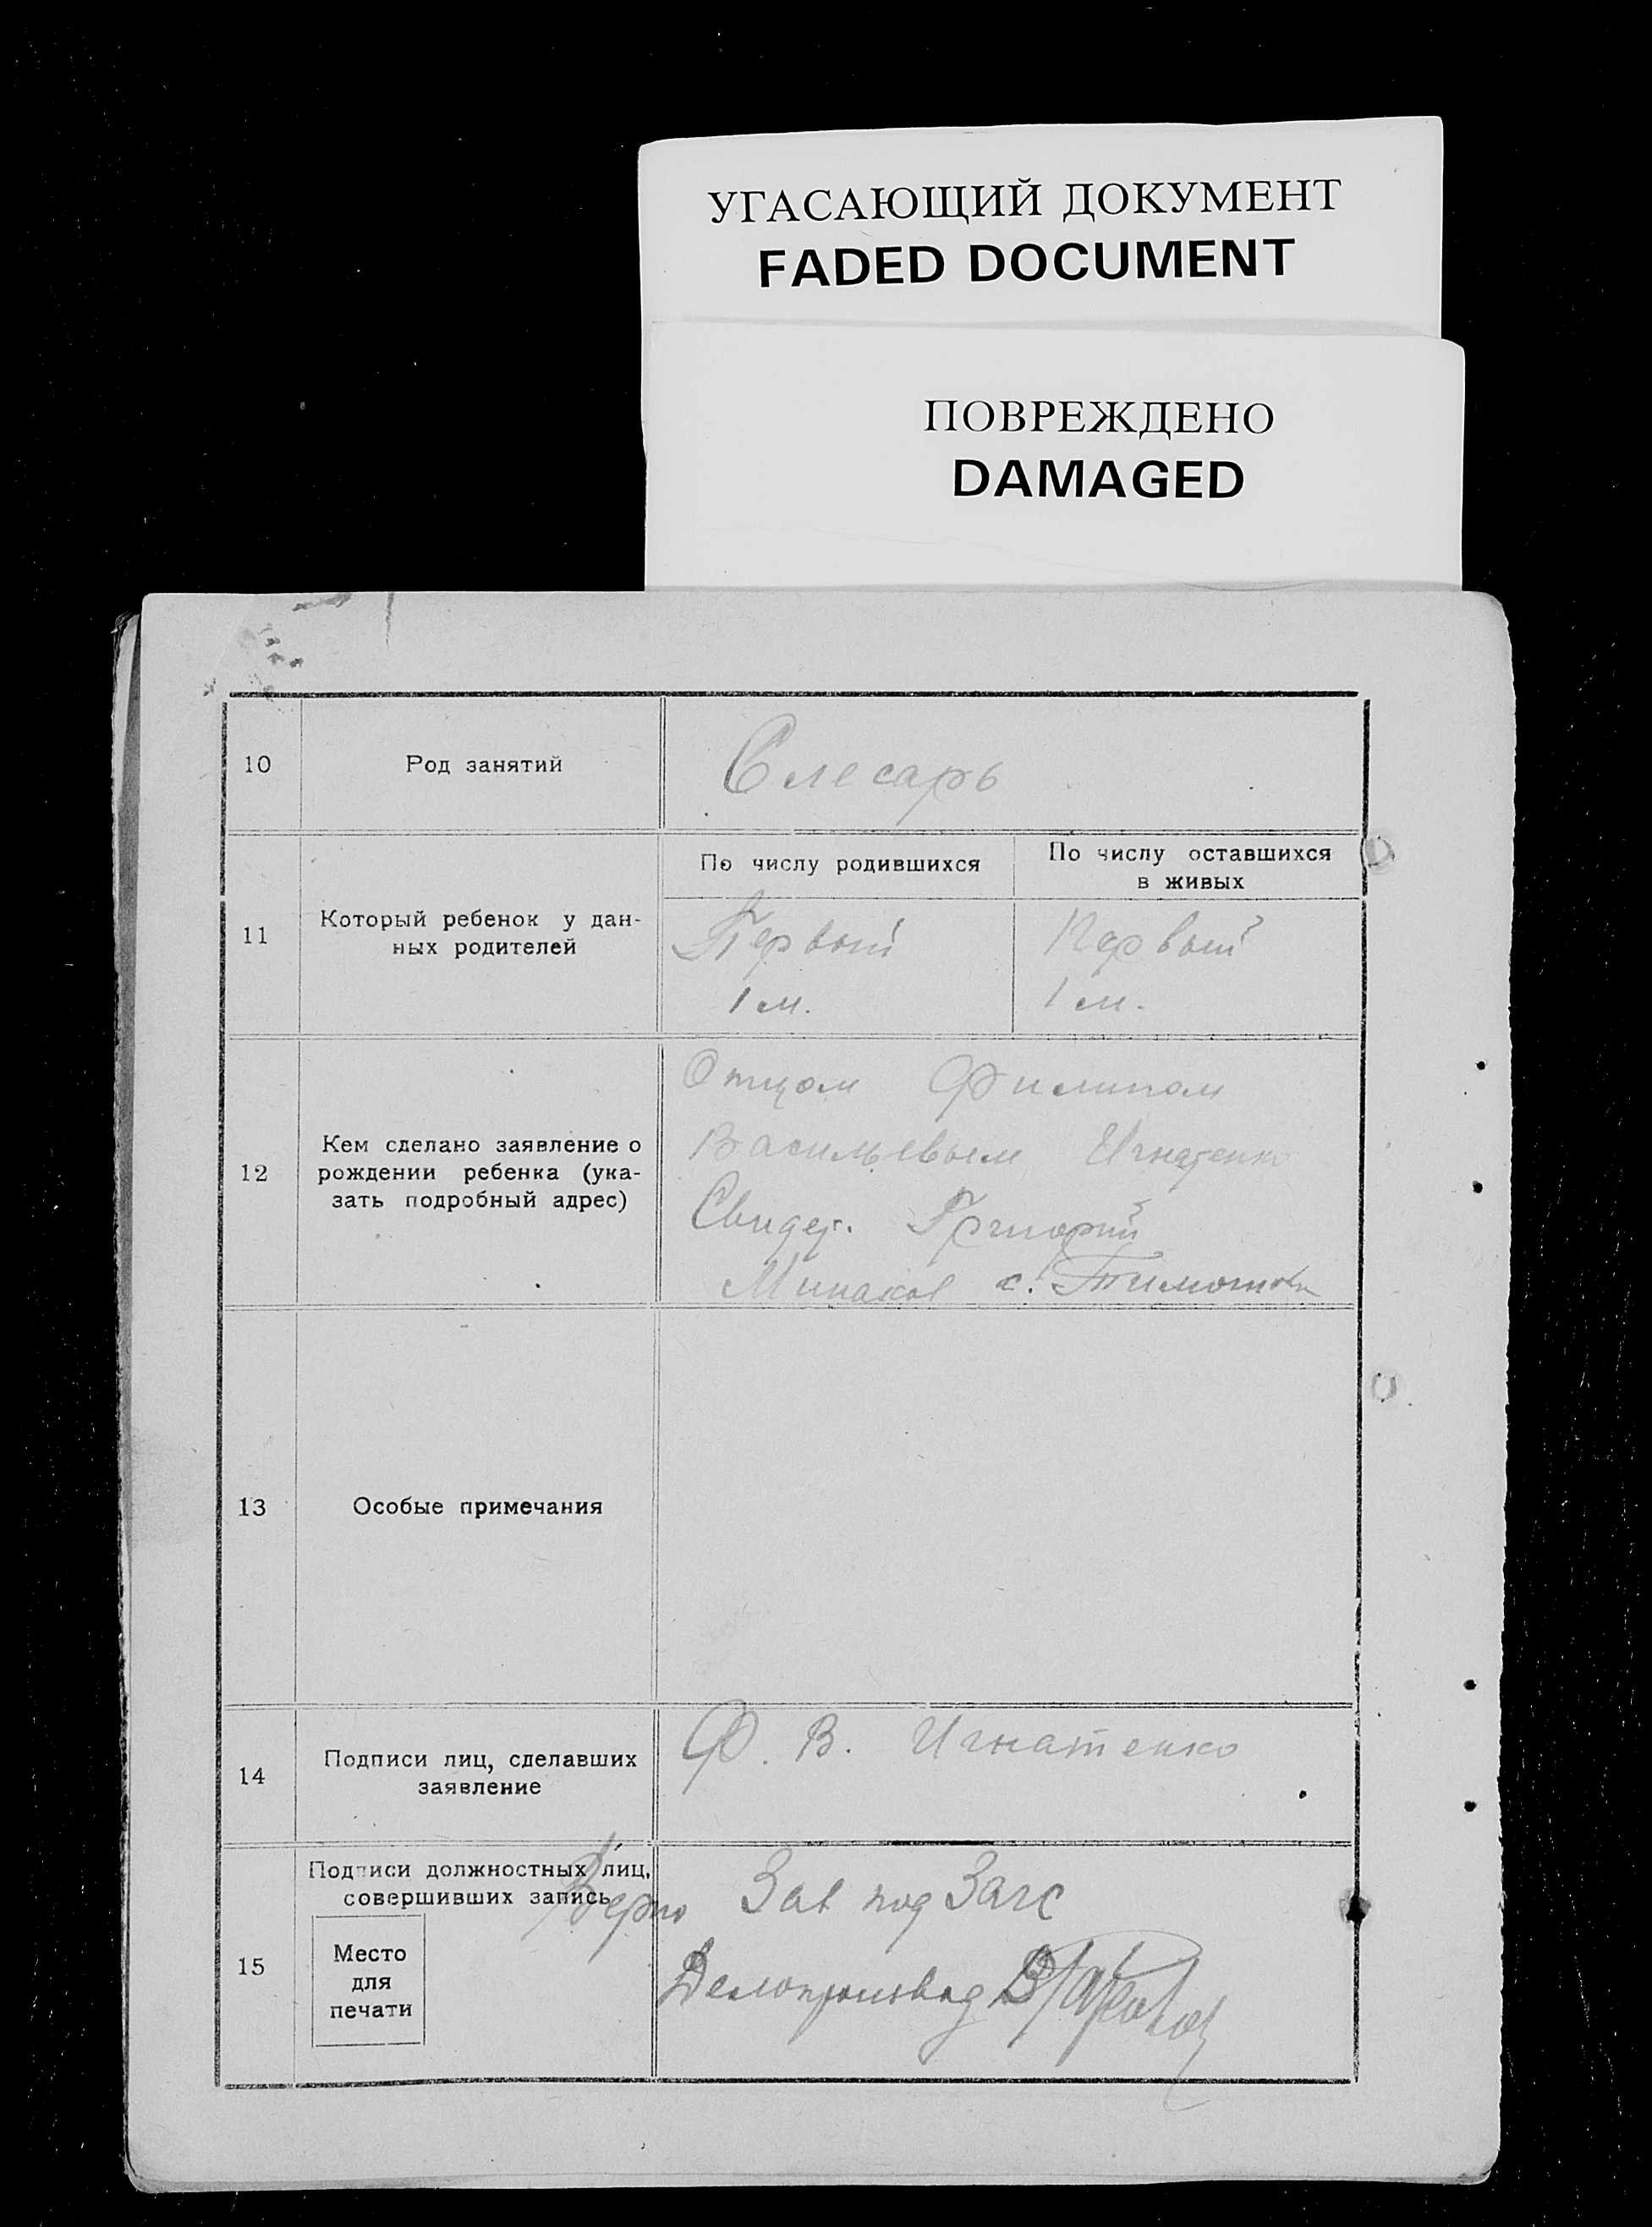 УГАСАЮЩИЙ ДОКУМЕНТ
FADED DOCUMENT
ПОВРЕЖДЕНО
DAMAGED
10
Род занятий
Слесарь
11
Который ребенок у дан-
ных родителей
По числу родившихся
Первый
1 м.
По числу оставшихся
в живых
Первый
1 м.
12
Кем сделано заявление о
рождении ребенка (ука-
зать подробный адрес)
Отцом Филипом
Васильевым Игнатенко
Свидет. Григорий
Минаков с.
13
Особые примечания
14
Подписи лиц, сделавших
заявление
Ф. В. Игнатенко
15
Подписи должностных лиц,
совершивших запись
Место
для
печати
Верно Зав под Загс
Делопроизвод